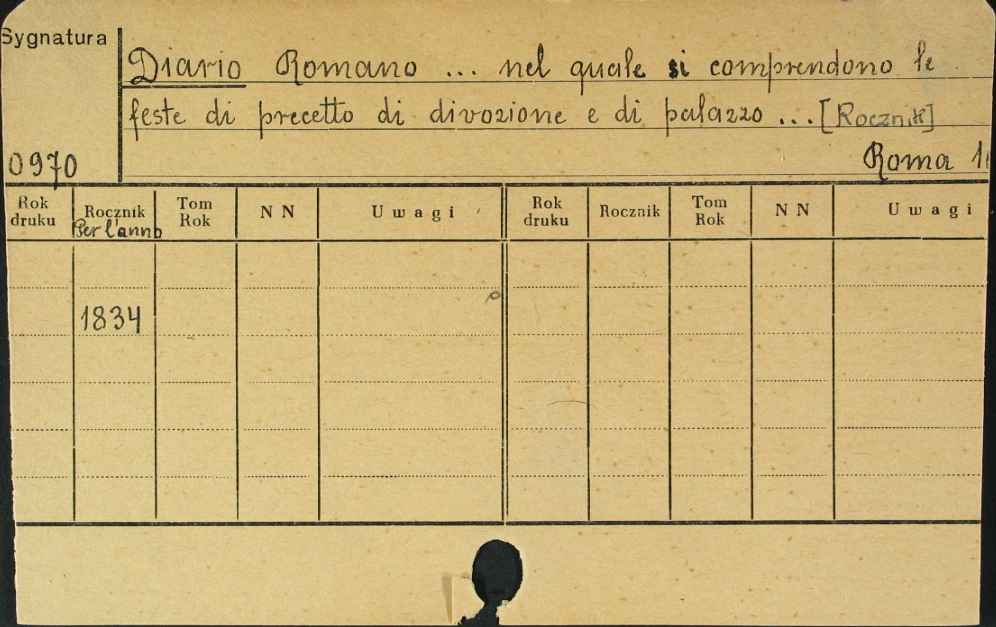 Sygnatura
Diario Romano ... nel quale si comprendono le
feste di precetto di divozione e di palazzo ... [Rocznik]
0970
Roma 1
Rok druku Rocznik Tom Rok NN Uwagi Rok druku Rocznik Tom Rok NN Uwagi
Per l'anno
1834